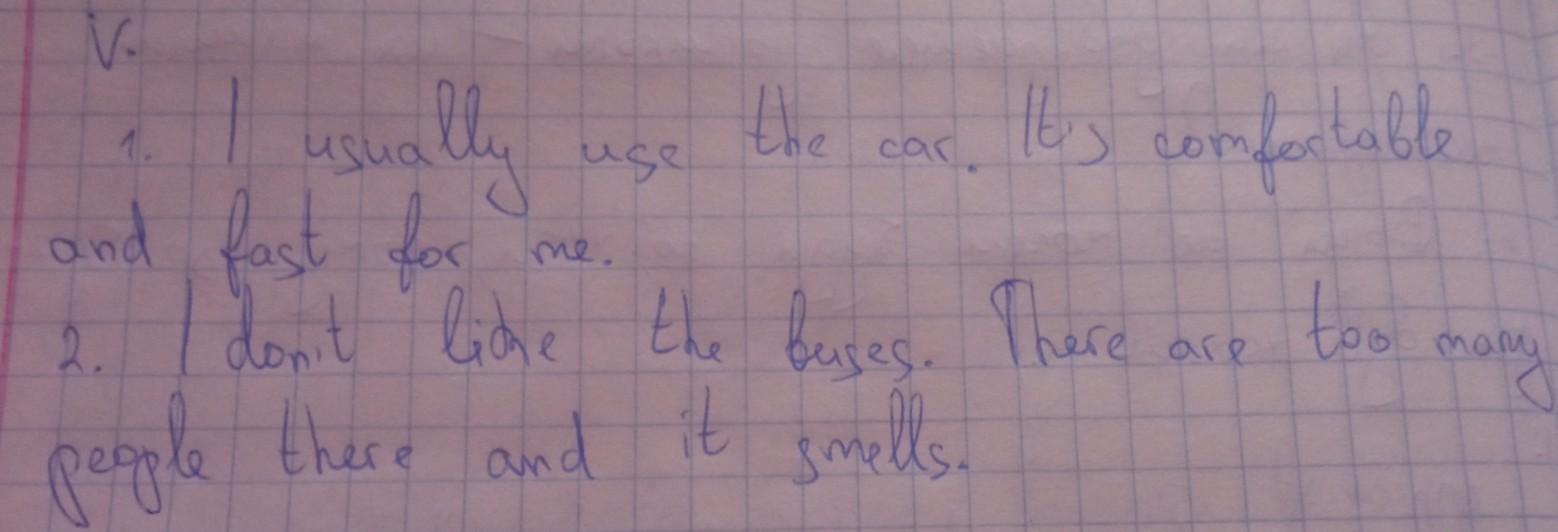 V.
1. I usually use the car. It's comfortable
and fast for me.
2. I don't like the buses. There are too many
people there and it smells.